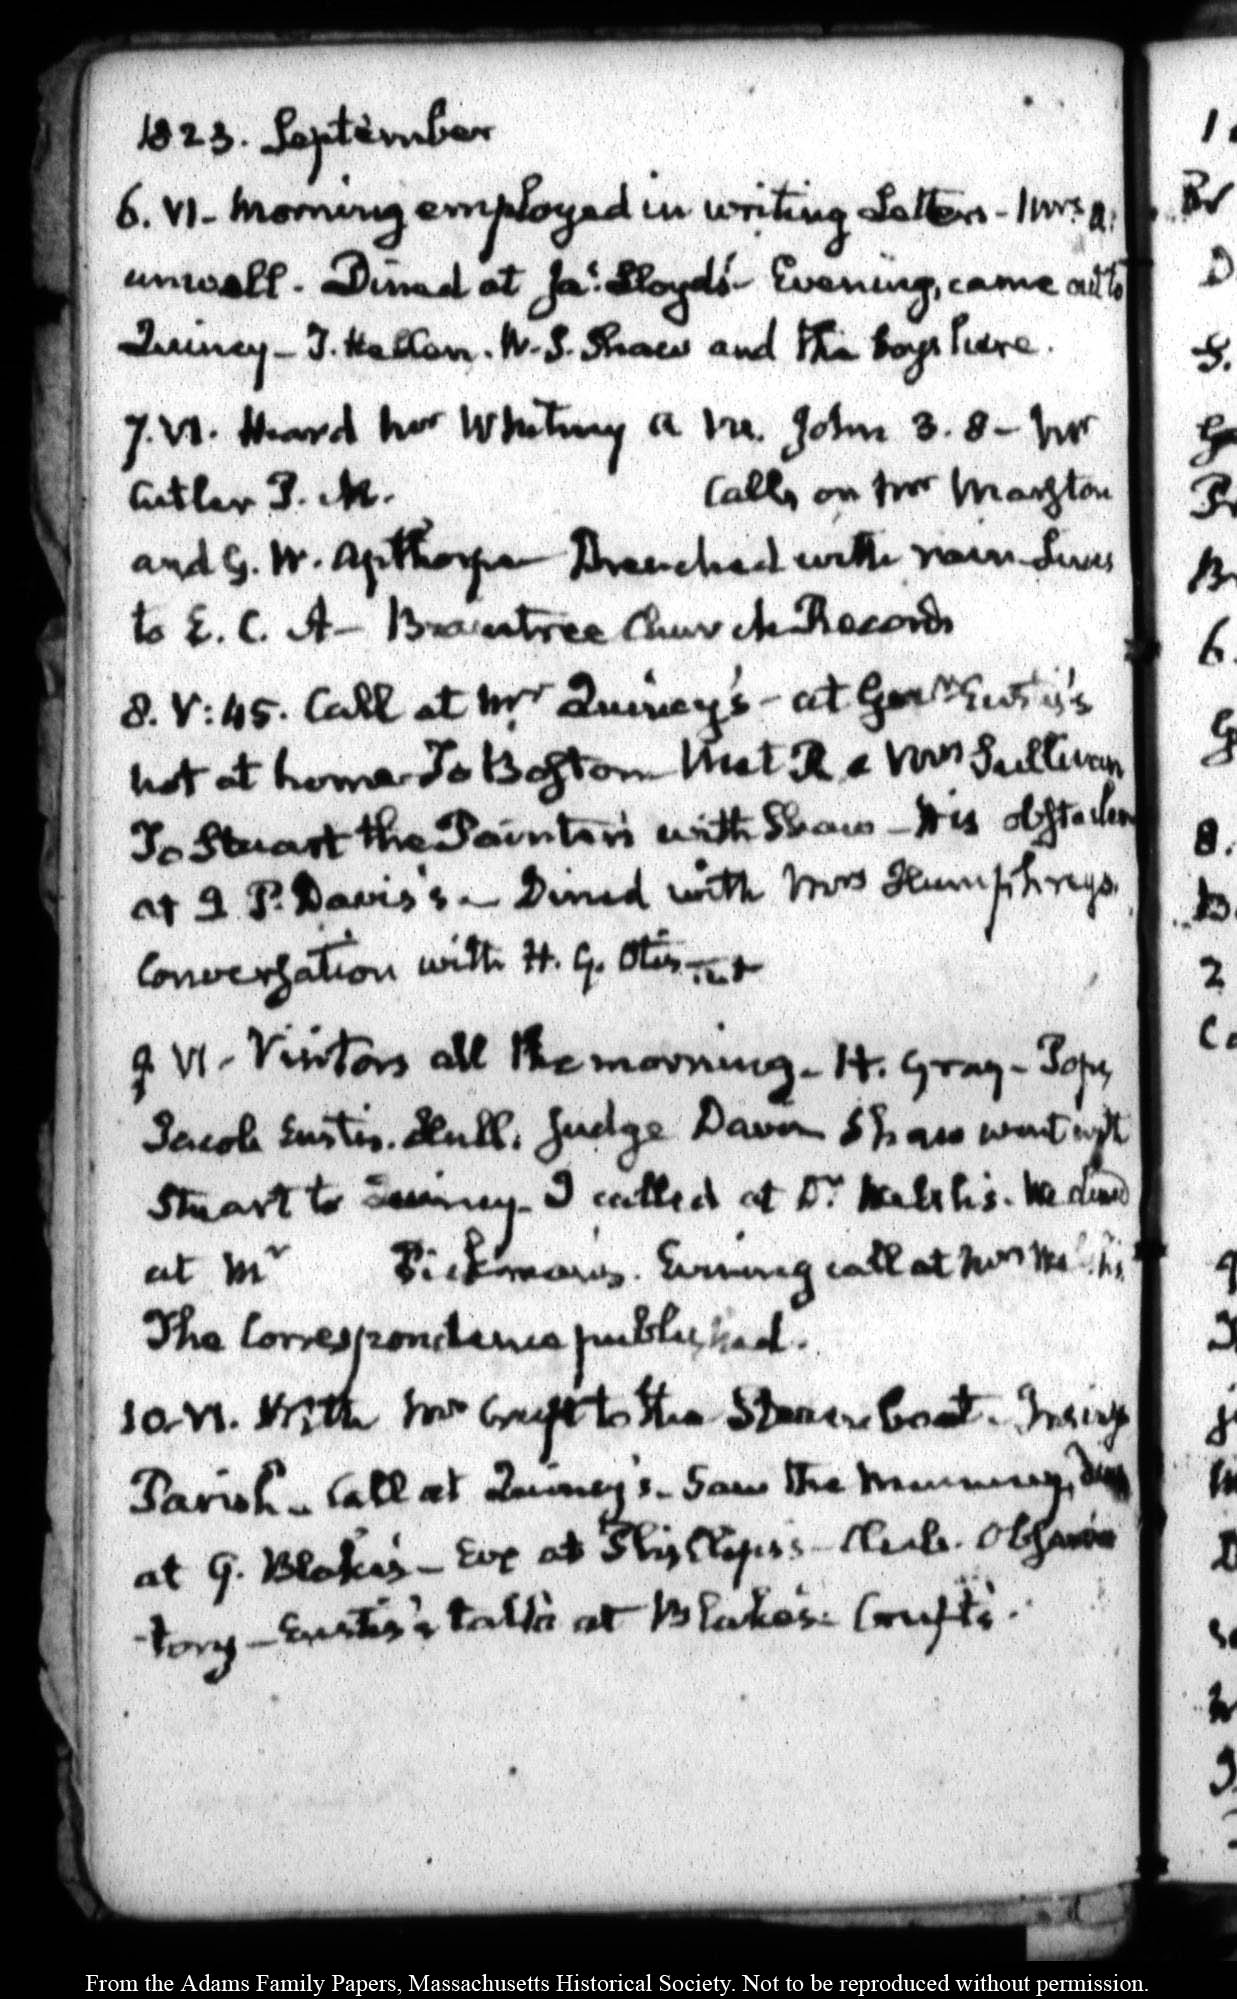 1823. September
6. VI- Morning employed in writing Letters- Mrs. A.
unwell. Dined at Jas. Lloyd's- Evening, came out to
Quincy- T. Hellen. W. S. Shaw and the boys here.
7. VI. Heard Mr Whitney A. M. John 3. 8- Mr
Cutler P. M. Calls on Mr Marston
and G. W. Apthorp- Drenched with rain Lines
to E. C. A- Braintree Church Records
8. V:45. Call at Mr Quincy's- at Govr. Eustis's
not at home To Boston Met R & Mrs Sullivan
To Stuart the Painter's with Shaw- His obstacles
at I. P. Davis's- Dined with Mrs Humphreys.
Conversation with H. G. Otis-
9 VI- Visitors all the morning- H. Gray- Pope
Jacob Eustis. Hull. Judge Davis Shaw went with
Stuart to Quincy- I called at Dr Welsh's. We dined
at Mr Pickman's. Evening call at Mrs
The Correspondence published.
10. VI. With Mr Cruft to the Steam boat-
Parish- Call at Quincy's- Saw the Mummy,
at G. Blake's- Eve at Club. Observa
-tory- Eustis's talk at Blake's- Cruft's.
1
Br
D
S.
G
Pr
Br
6.
G
8.
B.
2
Co
9
D
From the Adams Family Papers, Massachusetts Historical Society. Not to be reproduced without permission.